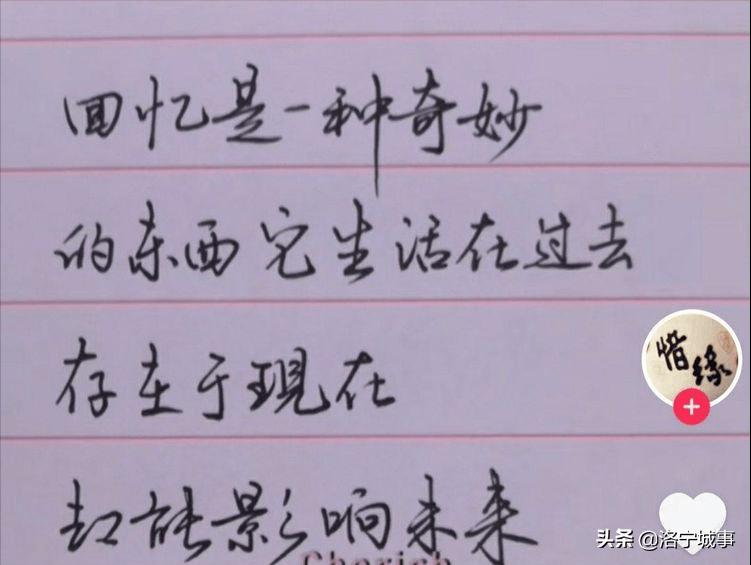 回忆是一种奇妙
的东西它生活在过去
存在于現在
却能影响未来
惜缘
Cherish
头条 @洛宁城事